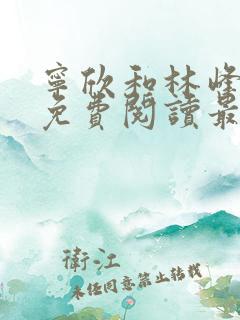 寧欣和林峰
免費閱讀最
衛江
未經同意禁止轉載